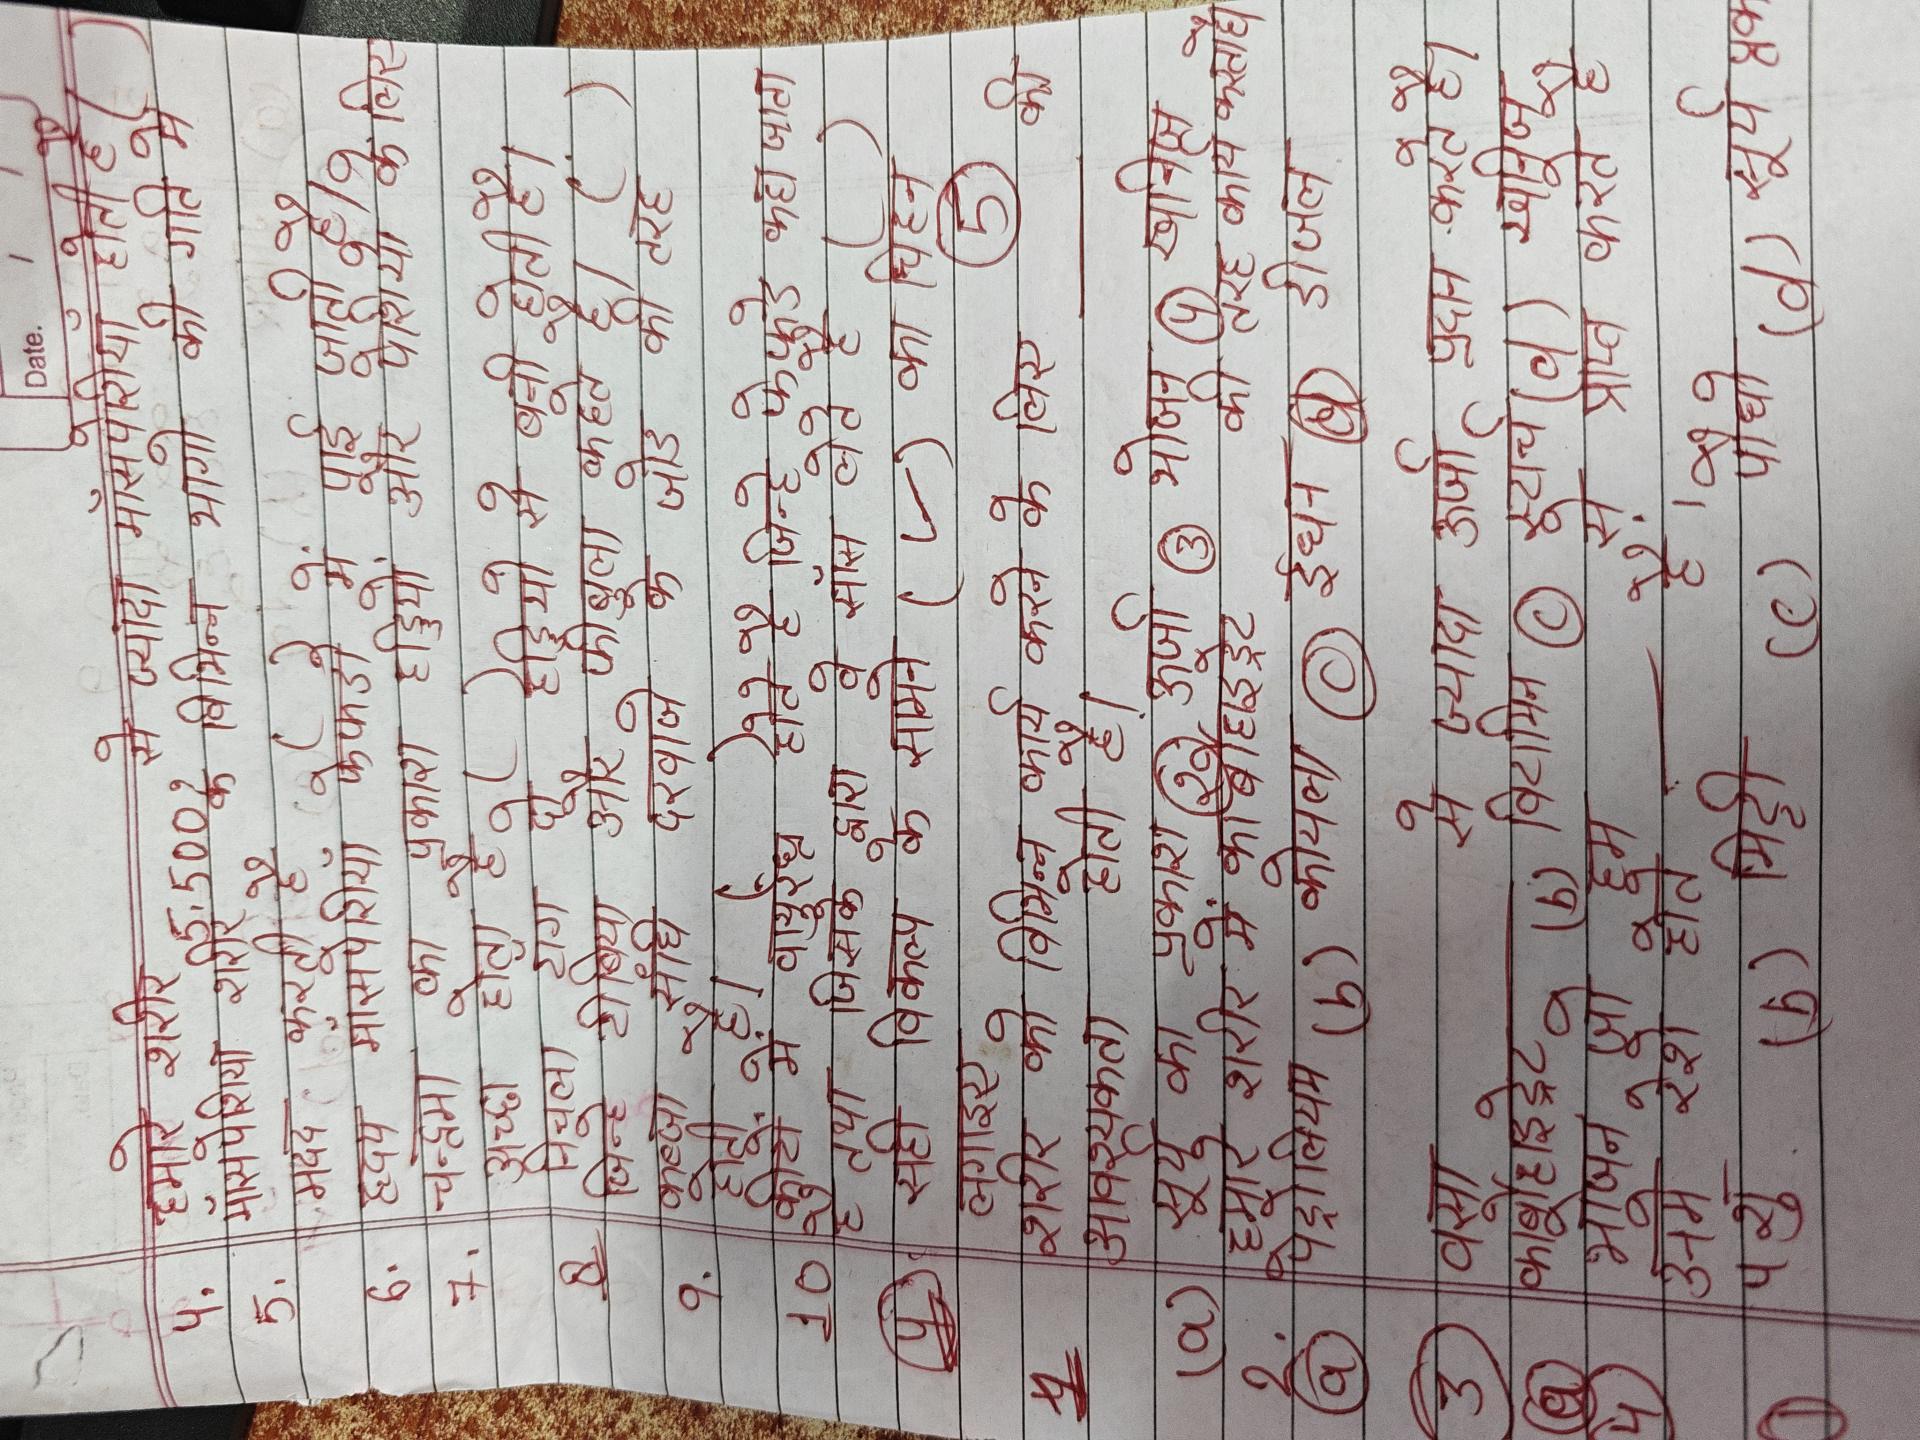 Date.
4. हमारे शरीर में ज्यादा मॉसपेशीयॉ होती है (
5. मॉसपेशिया शरीर के विभिन्न भागो को गति में
मदद करती है ( )
6. हदय मासपेशियॉ फेफडो में पाई जाती है।
7. चन्द्रमा का प्रकाश हड्डिया और पेशिया के लिए
अच्छा होता है ( )
8 निचला टांग दो हड्डियो से बनी होती है।
जिन्हे टीबिया और फीबुला कहते है। ( )
9. कब्जा संधि दरवाजे के जोड की तरह
होती है। ( )
10 कीटो में वायुरंध्र होते है जिन्हे फेफडे कहा जाता
है तथा जिसके द्वारा वे सॉस लेते है ( )
4 सही विकल्प के सामने (✓) का चिहन
लगाइए (5)
1 शरीर को विभिन्न कार्य करने के लिए की
आवश्यकता होती है।
(a) सूर्य का प्रकाश (2) ऊर्जा (3) भोजन (4) खनिज
2. हमारे शरीर में कार्बोहाइड्रेट की तरह कार्य करता है
(a) पेट्रोलियम (b) कोयला (c) ईंधन (d) डीजल
3 वसा से ज्यादा ऊर्जा प्रदान करते है।
(a) कार्बोहाइड्रेट (b) विटामिन (c) (d) खनिज
4 भोजन जो हम से प्राप्त करते है
उनमे रेशे होते है
1) पशु (b) मिट्टी (c) पौधो (d) सूर्य